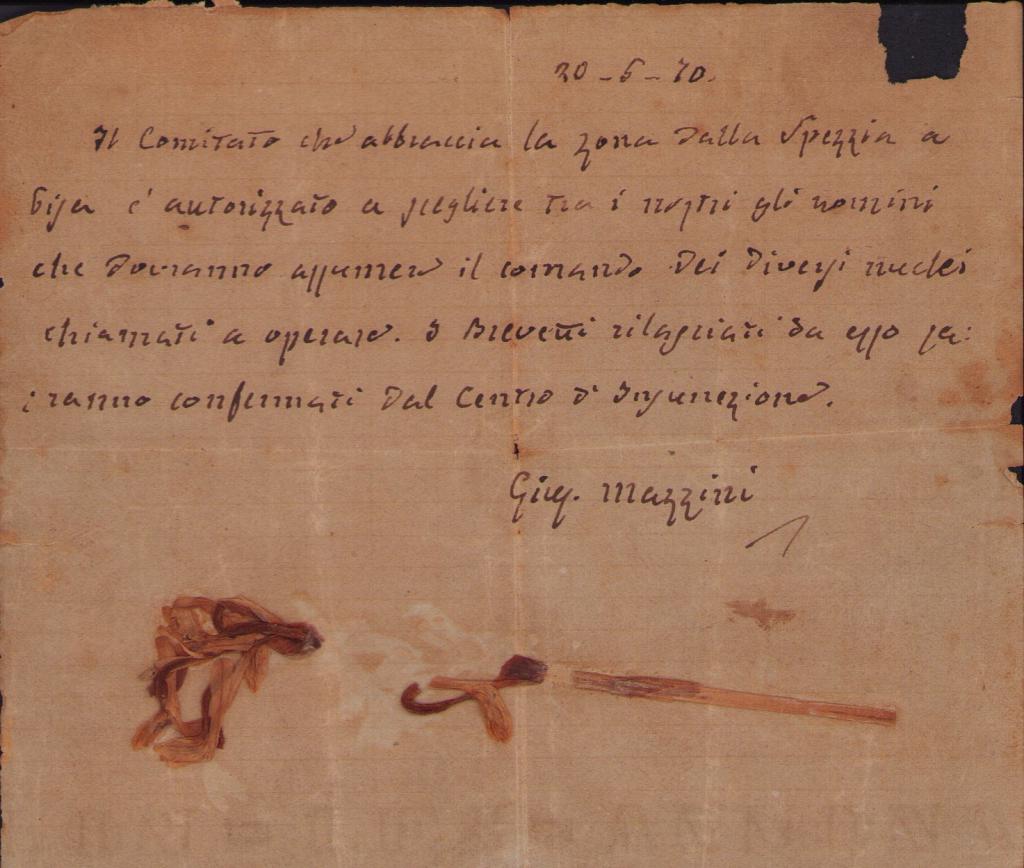 20 - 5 - 70.
Il Comitato che abbraccia la zona dalla Spezzia a
Pisa è autorizzato a scegliere tra i nostri gli uomini
che dovranno assumere il comando dei diversi nuclei
chiamati a operare. I Brevetti rilasciati da esso sa:
: ranno confermati dal Centro d'Insurrezione.
Gius. Mazzini